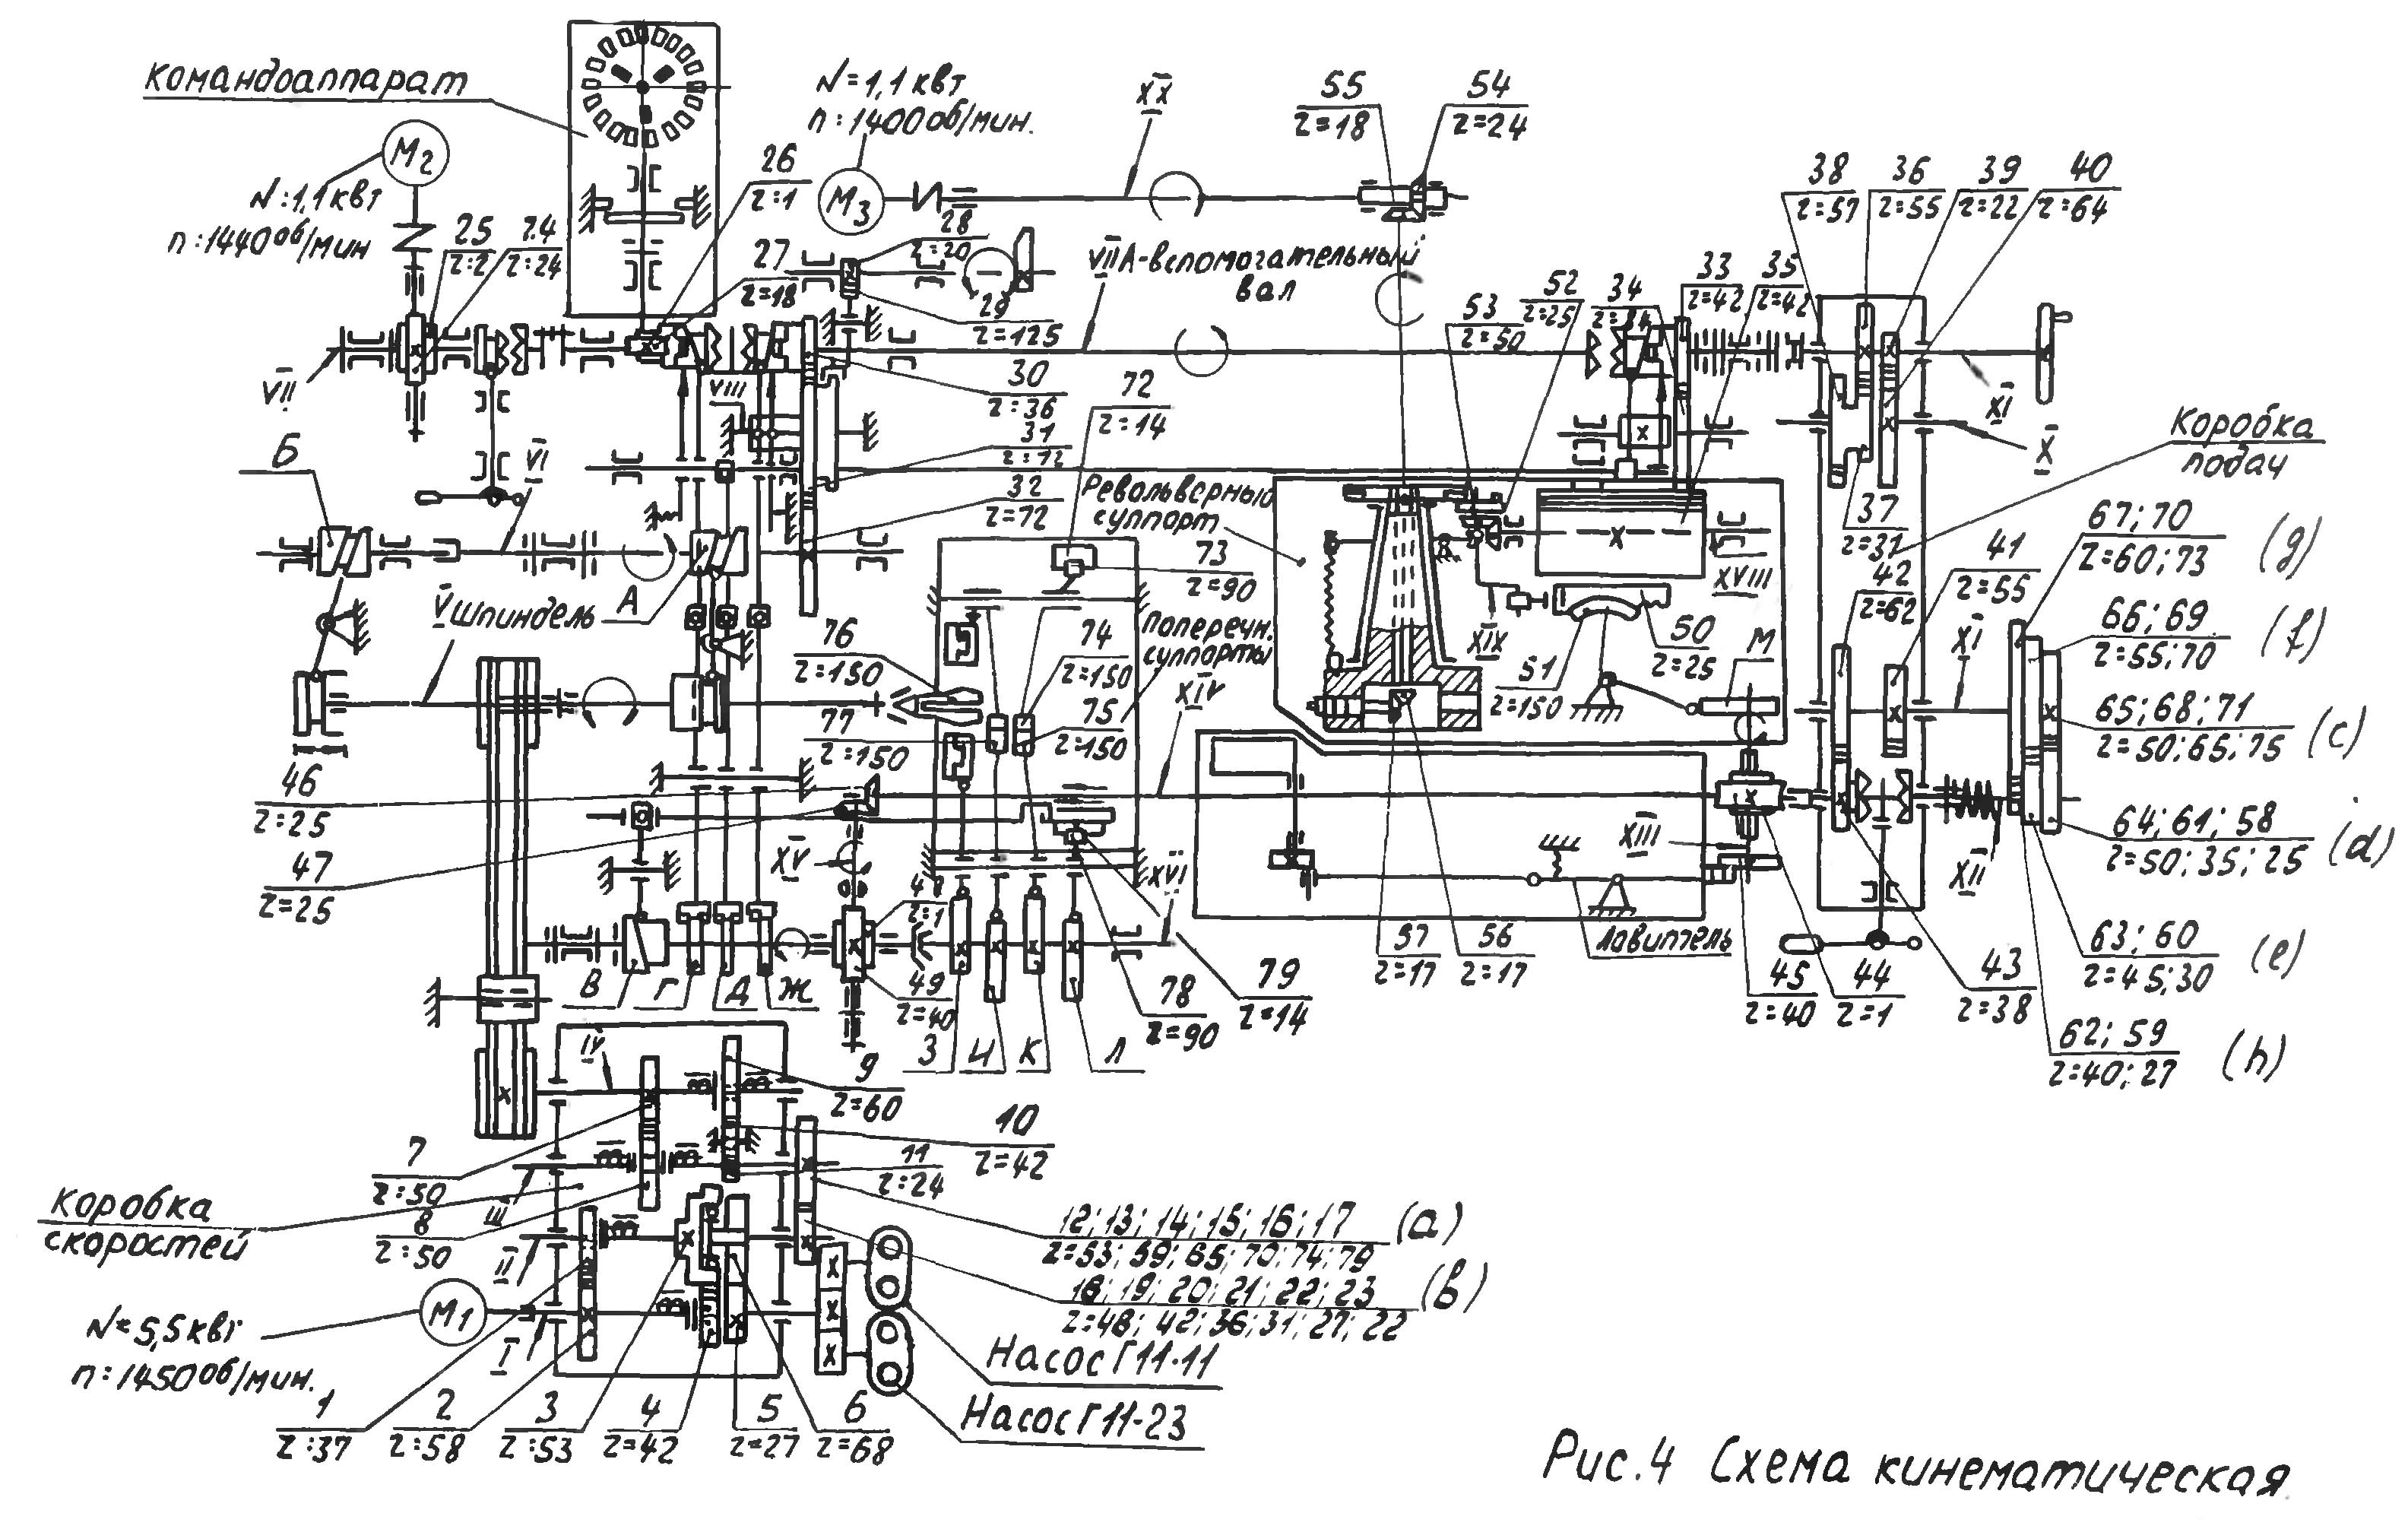 командоаппарат
N=1,1 квт
n:1400 об/мин.
M3
XX
55
z=18
54
z=24
M2
N:1,1 квт
n:1440 об/мин
25
z:2
24
z:24
26
z:1
27
z=18
28
z:20
29
z=125
VIIA-вспомогательный
вал
VII
VIII
30
z:36
31
z=72
32
z=72
53
z=50
52
z=25
34
33
z=42
35
z=42
38
z=57
36
z=55
39
z=22
40
z=64
XI
X
Коробка
подач
37
z=31
Б
VI
А
V шпиндель
72
z=14
73
z=90
Револьверный
суппорт
Поперечн.
суппорты
74
z=150
75
z=150
76
z=150
77
z=150
XIV
XVIII
XIX
50
z=25
51
z=150
М
42
z=62
41
z=55
XI
67; 70
z=60; 73
(g)
66; 69
z=55; 70
(f)
65; 68; 71
z=50; 65; 75
(c)
64; 61; 58
z=50; 35; 25
(d)
63; 60
z=45; 30
(e)
62; 59
z=40; 27
(h)
46
z=25
47
z=25
XV
48
z=1
49
z=40
XVI
XIII
XII
В
Г
Д
Ж
З
И
К
Л
78
z=90
79
z=14
57
z=17
56
z=17
Ловитель
45
z=40
44
z=1
43
z=38
IV
9
z=60
10
z=42
11
z=24
7
z:50
8
z:50
III
II
I
коробка
скоростей
12; 13; 14; 15; 16; 17
z=53; 59; 65; 70; 74; 79
(a)
18; 19; 20; 21; 22; 23
z=48; 42; 36; 31; 27; 22
(в)
M1
N=5,5 квт
n:1450 об/мин.
Насос Г11-11
Насос Г11-23
1
z:37
2
z:58
3
z:53
4
z=42
5
z=27
6
z=68
Рис.4 Схема кинематическая